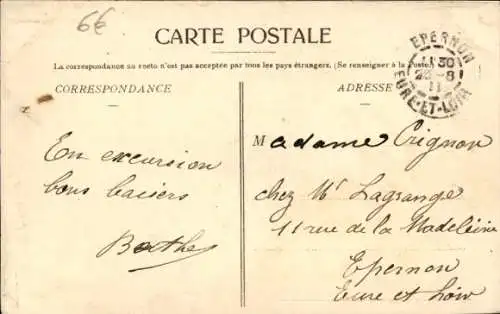 6€
CARTE POSTALE
La correspondance au recto n'est pas acceptée par tous les pays étrangers. (Se renseigner à la Poste.)
CORRESPONDANCE
En excursion
bons baisers
Berthe
ADRESSE
EPERNON
11 30
23 - 8
11
EURE-ET-LOIR
Madame Crignon
chez Mr Lagrange
11 rue de la Madeleine
Epernon
Eure et Loir